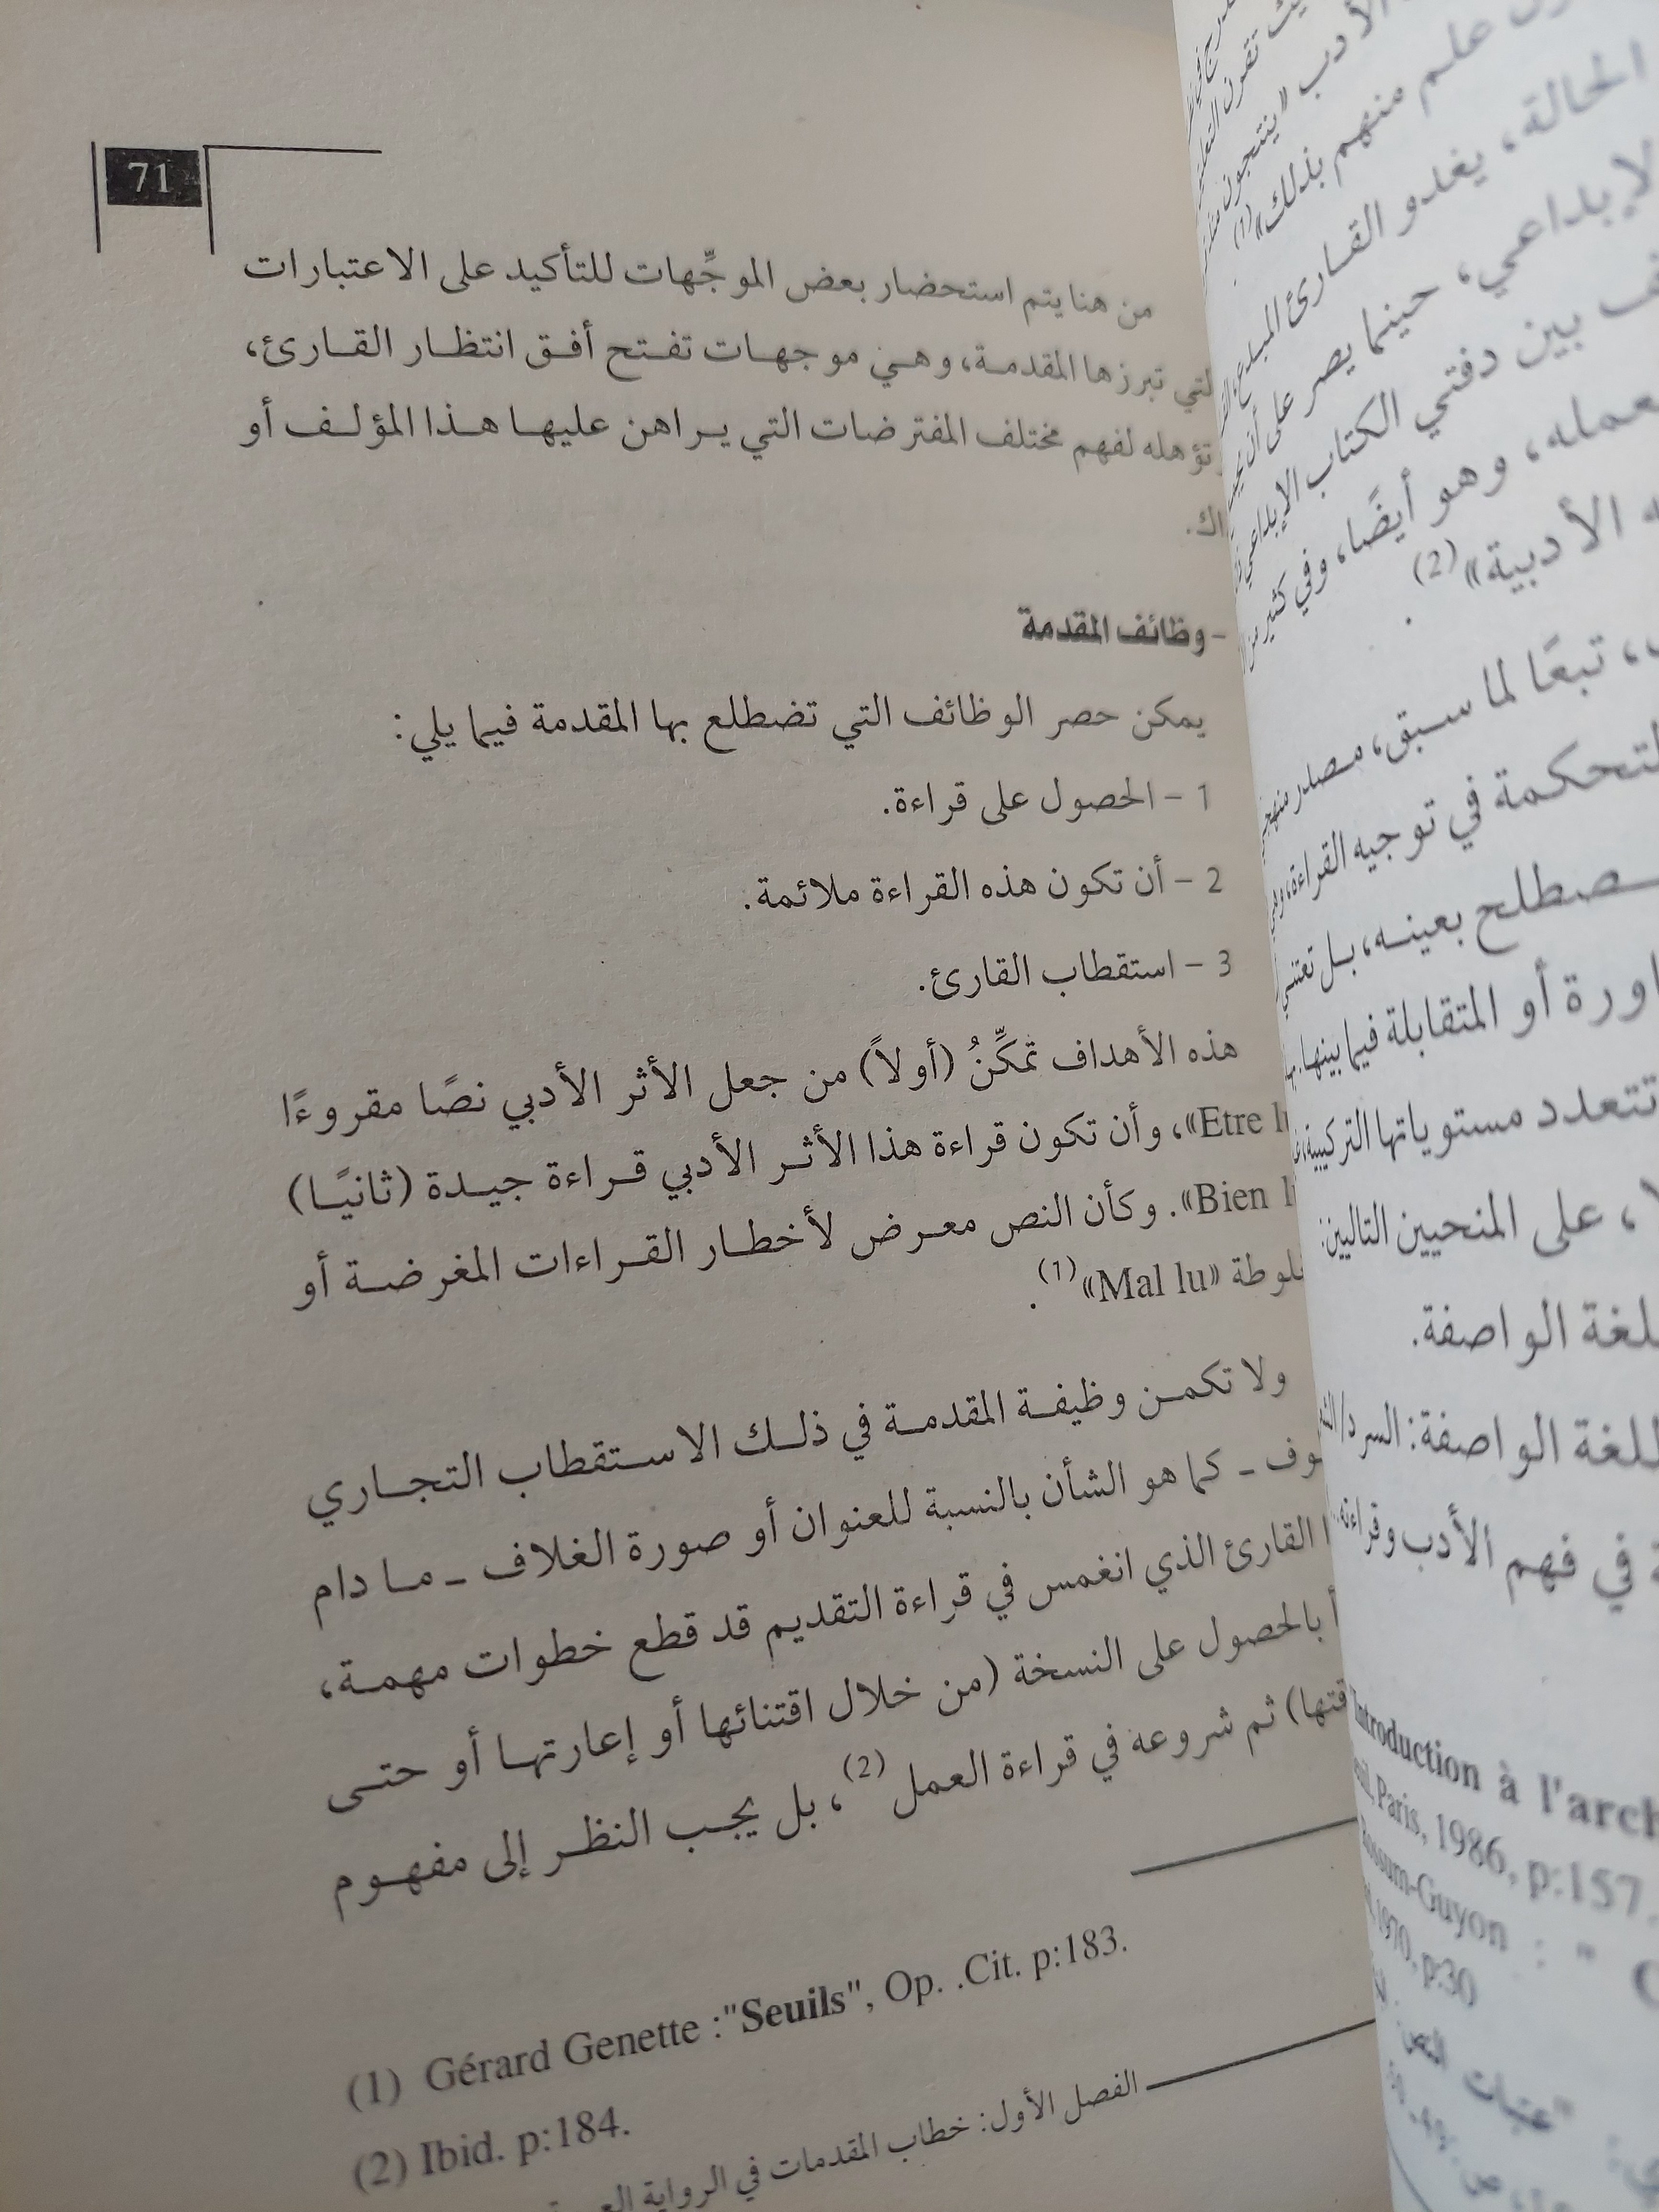 71
من هنا يتم استحضار بعض الموجِّهات للتأكيد على الاعتبارات
لتي تبرزها المقدمة، وهي موجهات تفتح أفق انتظار القارئ،
تؤهله لفهم مختلف المفترضات التي يراهن عليها هذا المؤلف أو
اك.
- وظائف المقدمة
يمكن حصر الوظائف التي تضطلع بها المقدمة فيما يلي:
1 - الحصول على قراءة.
2 - أن تكون هذه القراءة ملائمة.
3 - استقطاب القارئ.
هذه الأهداف تمكِّنُ (أولاً) من جعل الأثر الأدبي نصًا مقروءًا
«Etre l»، وأن تكون قراءة هذا الأثر الأدبي قراءة جيدة (ثانيًا)
«Bien l». وكأن النص معرض لأخطار القراءات المغرضة أو
لوطة «Mal lu»(1).
ولا تكمن وظيفة المقدمة في ذلك الاستقطاب التجاري
وف - كما هو الشأن بالنسبة للعنوان أو صورة الغلاف - ما دام
ا القارئ الذي انغمس في قراءة التقديم قد قطع خطوات مهمة،
أ بالحصول على النسخة (من خلال اقتنائها أو إعارتها أو حتى
قتها) ثم شروعه في قراءة العمل(2)، بل يجب النظر إلى مفهوم
(1) Gérard Genette :"Seuils", Op. .Cit. p:183.
(2) Ibid. p:184.
الفصل الأول: خطاب المقدمات في الرواية
الأدب «ينتجون
علم منهم بذلك»(1)
الحالة، يغدو القارئ المبدع
لإبداعي، حينما يصر على أن
ف بين دفتي الكتاب الإبداعي
عمله، وهو أيضًا، وفي كثير من
ه الأدبية»(2).
، تبعًا لما سبق، مصدر
لتحكمة في توجيه القراءة،
صطلح بعينه، بل تعتني
اورة أو المتقابلة فيما بينها.
تتعدد مستوياتها التركيبية
، على المنحيين التاليين:
لغة الواصفة.
للغة الواصفة: السرد/
ة في فهم الأدب وقراءته
ntroduction à l'arch
Paris, 1986, p:157.
ossum-Guyon : "
1970, p:30
"عتبات النص